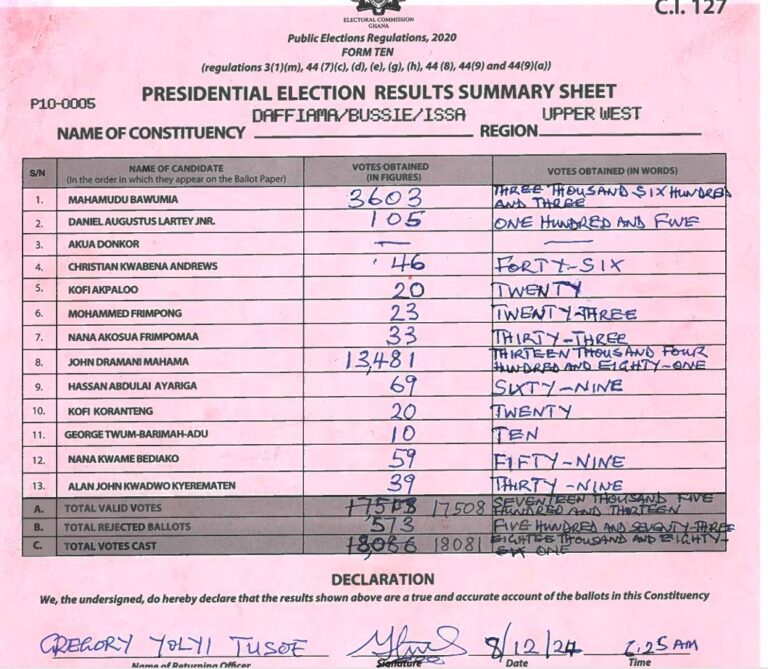 ELECTORAL COMMISSION
GHANA
C.I. 127
Public Elections Regulations, 2020
FORM TEN
(regulations 3(1)(m), 44 (7)(c), (d), (e), (g), (h), 44 (8), 44(9) and 44(9)(a))
P10-0005
PRESIDENTIAL ELECTION RESULTS SUMMARY SHEET
NAME OF CONSTITUENCY DAFFIAMA/BUSSIE/ISSA REGION UPPER WEST
S/N NAME OF CANDIDATE (In the order in which they appear on the Ballot Paper) VOTES OBTAINED (IN FIGURES) VOTES OBTAINED (IN WORDS)
1. MAHAMUDU BAWUMIA 3603 THREE THOUSAND SIX HUNDRED AND THREE
2. DANIEL AUGUSTUS LARTEY JNR. 105 ONE HUNDRED AND FIVE
3. AKUA DONKOR — —
4. CHRISTIAN KWABENA ANDREWS 46 FORTY-SIX
5. KOFI AKPALOO 20 TWENTY
6. MOHAMMED FRIMPONG 23 TWENTY-THREE
7. NANA AKOSUA FRIMPOMAA 33 THIRTY-THREE
8. JOHN DRAMANI MAHAMA 13,481 THIRTEEN THOUSAND FOUR HUNDRED AND EIGHTY-ONE
9. HASSAN ABDULAI AYARIGA 69 SIXTY-NINE
10. KOFI KORANTENG 20 TWENTY
11. GEORGE TWUM-BARIMAH-ADU 10 TEN
12. NANA KWAME BEDIAKO 59 FIFTY-NINE
13. ALAN JOHN KWADWO KYEREMATEN 39 THIRTY-NINE
A. TOTAL VALID VOTES 17508 SEVENTEEN THOUSAND FIVE HUNDRED AND THIRTEEN
B. TOTAL REJECTED BALLOTS 573 FIVE HUNDRED AND SEVENTY-THREE
C. TOTAL VOTES CAST 18086 18081 EIGHTEE THOUSAND AND EIGHTY-SIX ONE
DECLARATION
We, the undersigned, do hereby declare that the results shown above are a true and accurate account of the ballots in this Constituency
GREGORY 8/12/24 25 AM
Name of Returning Officer Signature Date Time